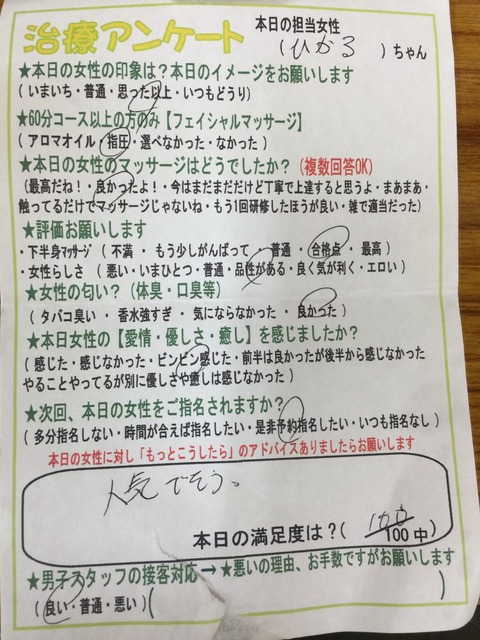 治療アンケート
本日の担当女性
(ひかる)ちゃん
★本日の女性の印象は？本日のイメージをお願いします
(いまいち・普通・思った以上・いつもどうり)
★60分コース以上の方のみ【フェイシャルマッサージ】
(アロマオイル・指圧・選べなかった・なかった)
★本日の女性のマッサージはどうでしたか？(複数回答OK)
(最高だね！・良かったよ！・今はまだまだだけど丁寧で上達すると思うよ・まあまあ・
触ってるだけでマッサージじゃないね・もう1回研修したほうが良い・雑で適当だった)
★評価お願いします
・下半身ﾏｯｻｰｼﾞ(不満・もう少しがんばって・普通・合格点・最高)
・女性らしさ(悪い・いまひとつ・普通・品性がある・良く気が利く・エロい)
★女性の匂い？(体臭・口臭等)
(タバコ臭い・香水強すぎ・気にならなかった・良かった)
★本日女性の【愛情・優しさ・癒し】を感じましたか？
(感じた・感じなかった・ビンビン感じた・前半は良かったが後半から感じなかった
やることやってるが別に優しさや癒しは感じなかった)
★次回、本日の女性をご指名されますか？
(多分指名しない・時間が合えば指名したい・是非予約指名したい・いつも指名なし)
本日の女性に対し「もっとこうしたら」のアドバイスありましたらお願いします
人気でそう。
本日の満足度は？(100/100中)
★男子スタッフの接客対応→★悪いの理由、お手数ですがお願いします
(良い・普通・悪い)( )